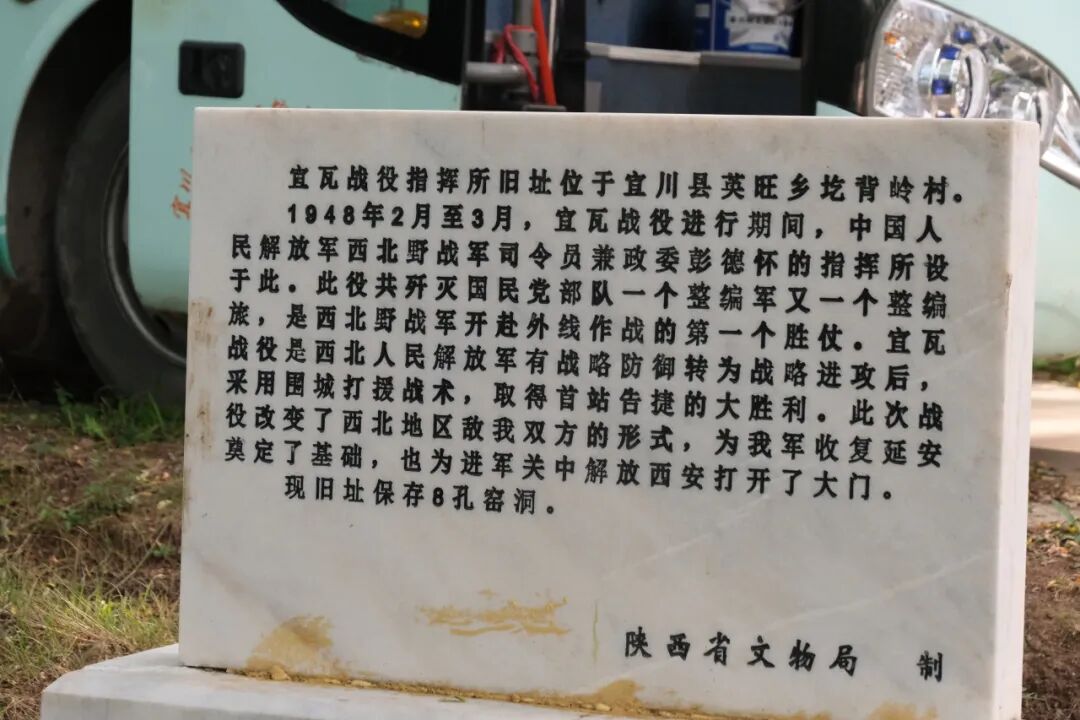 宜瓦战役指挥所旧址位于宜川县英旺乡圪背岭村。
1948年2月至3月，宜瓦战役进行期间，中国人
民解放军西北野战军司令员兼政委彭德怀的指挥所设
于此。此役共歼灭国民党部队一个整编军又一个整编
旅，是西北野战军开赴外线作战的第一个胜仗。宜瓦
战役是西北人民解放军有战略防御转为战略进攻后，
采用围城打援战术，取得首站告捷的大胜利。此次战
役改变了西北地区敌我双方的形式，为我军收复延安
奠定了基础，也为进军关中解放西安打开了大门。
现旧址保存8孔窑洞。
陕西省文物局 制
宜川